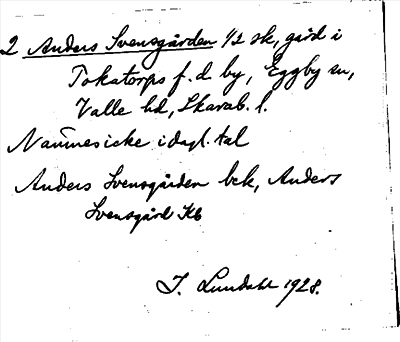 2 Anders Svensgården 1/2 sk, gård i
Tokatorps f.d by, Eggby sn,
Valle hd, Skarab. l.
Namnes icke i dagl. tal
Anders Svensgården bck, Anders
Svensgård Kb
I. Lundahl 1928.